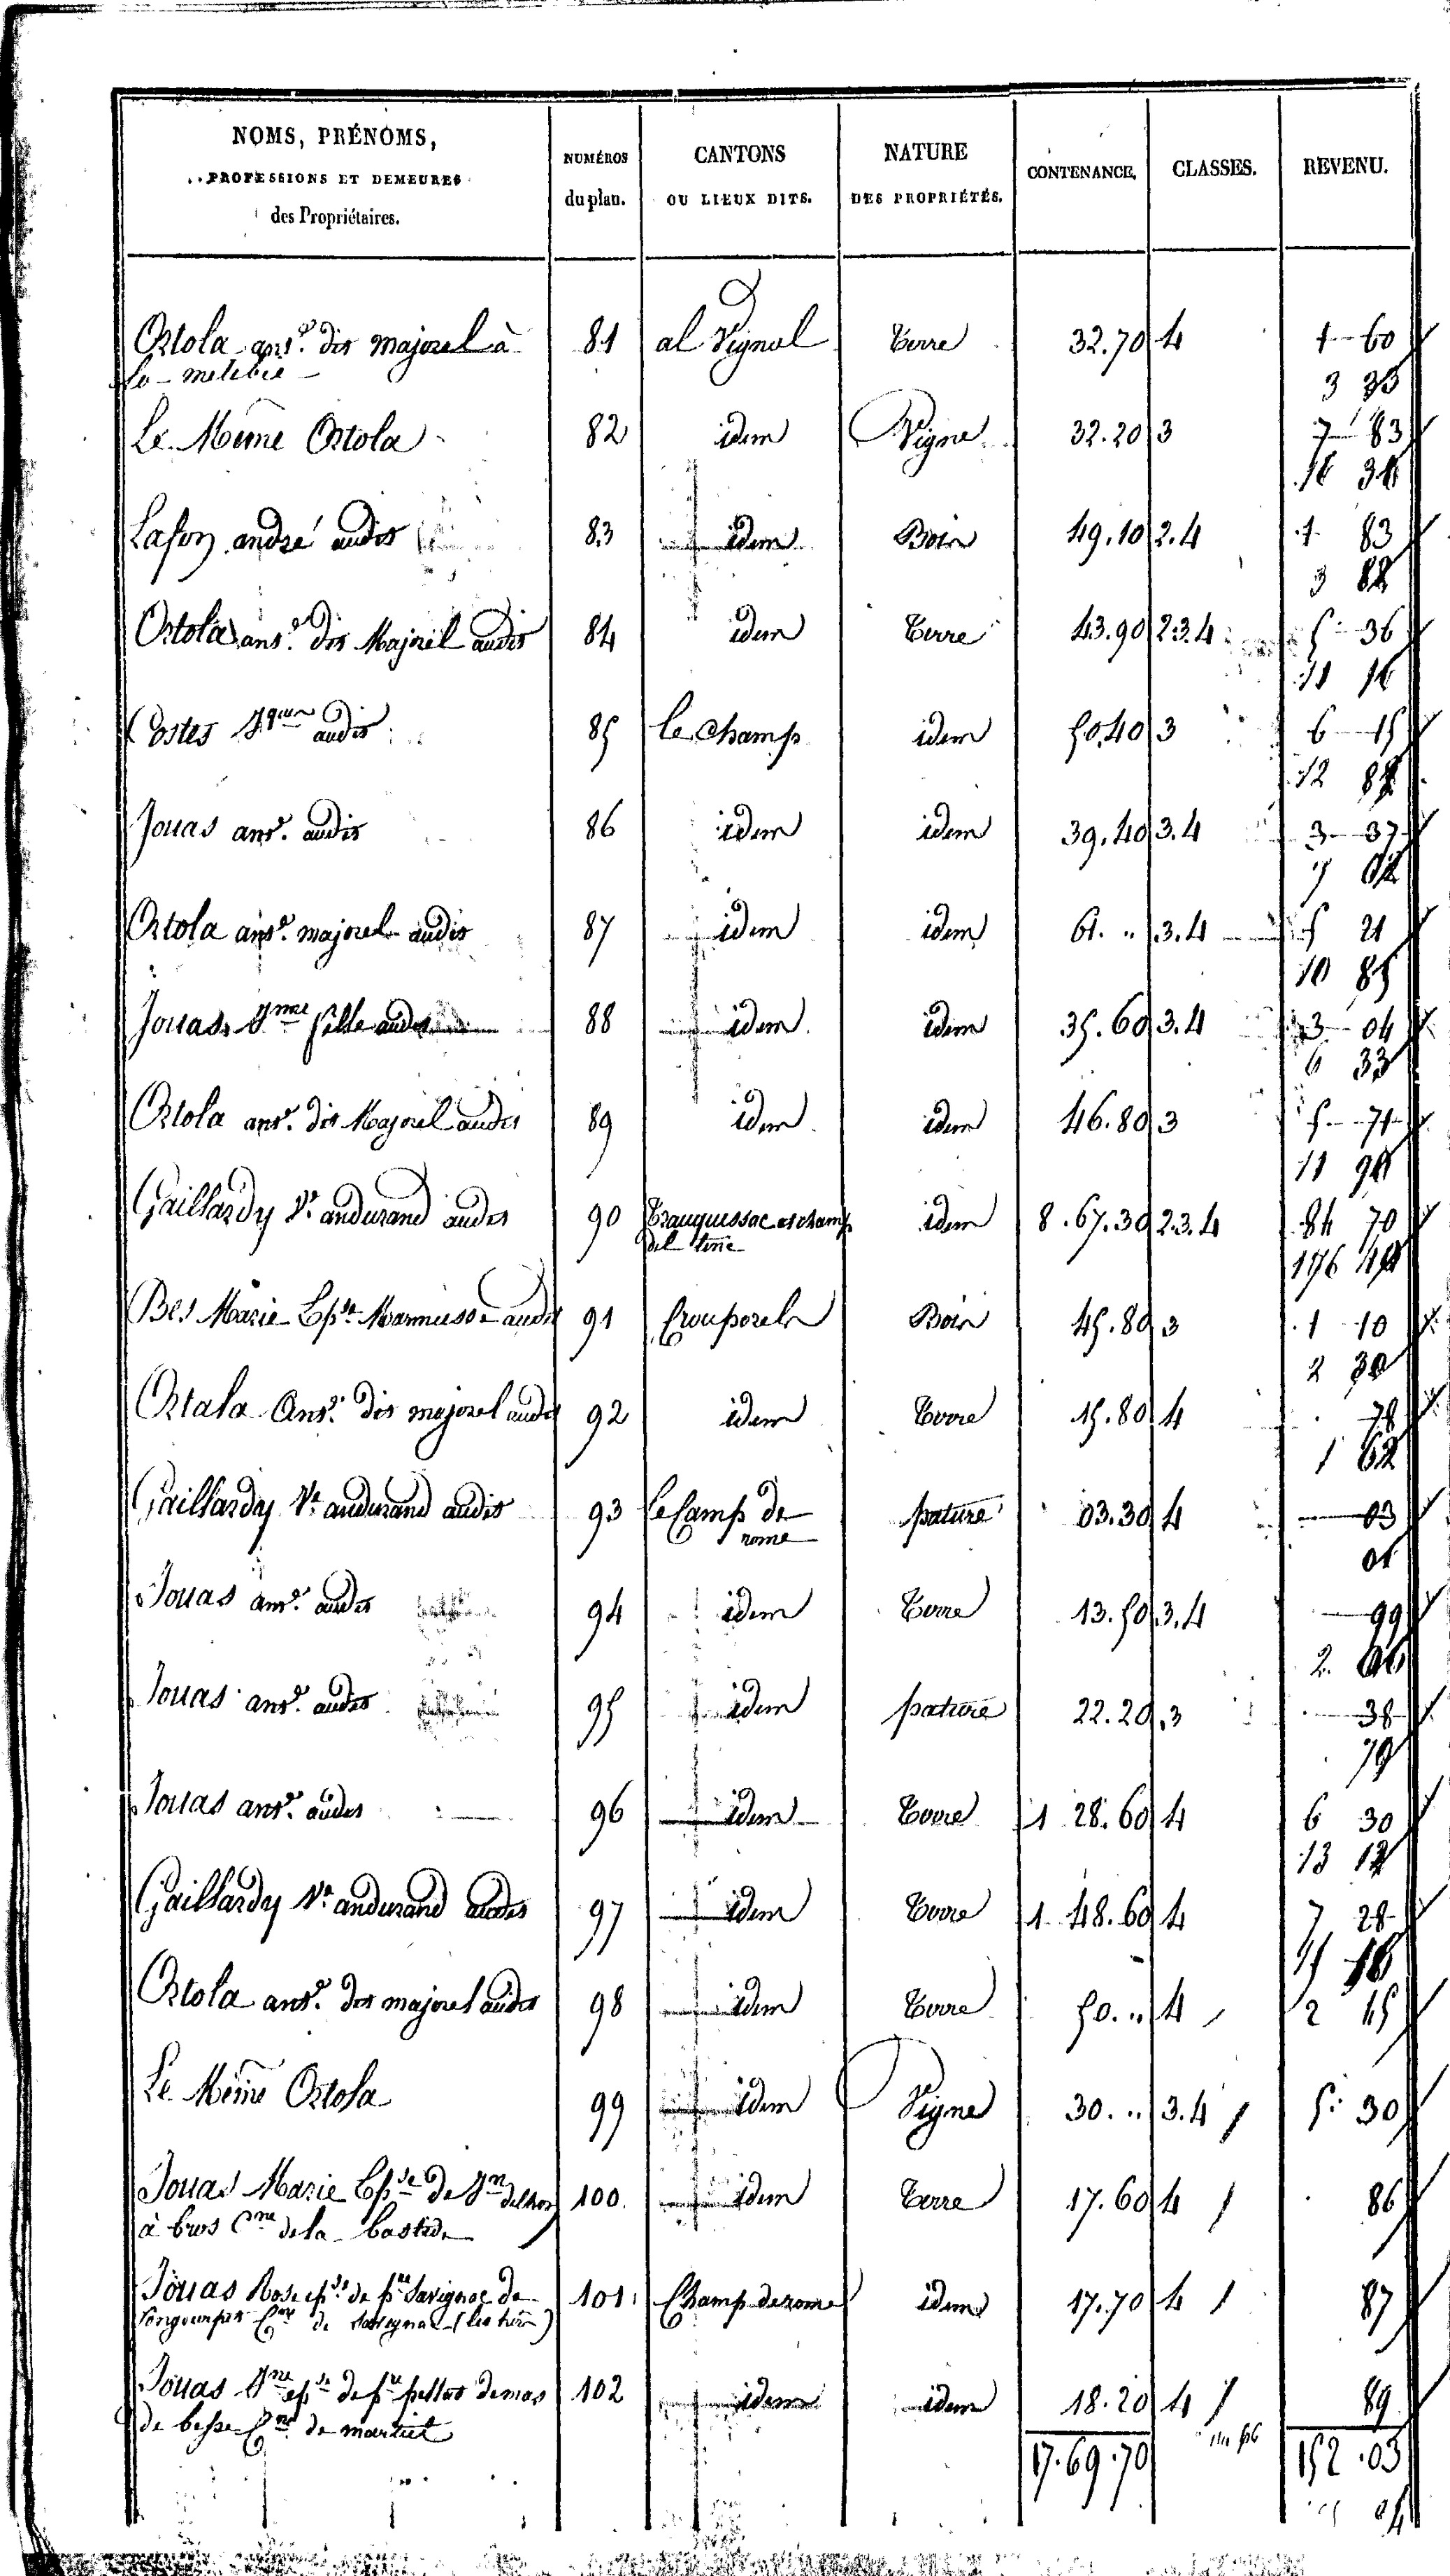 NOMS, PRÉNOMS, PROFESSIONS ET DEMEURES des Propriétaires. | NUMÉROS du plan. | CANTONS OU LIEUX DITS. | NATURE DES PROPRIÉTÉS. | CONTENANCE. | CLASSES. | REVENU.
Ortola ans.e dit Majorel à | 81 | al Vignal | Terre | 32.70 | 4 | 1 60
3 33
Le Même Ortola | 82 | idem | Vigne | 32.20 | 3 | 7 83
16 31
Lafon andré audit | 83 | idem | Bois | 49.10 | 2.4 | 1 83
3 82
Ortola ans.e dit Majorel audit | 84 | idem | Terre | 43.90 | 2.3.4 | 5 36
11 16
Costes audit | 85 | le champ | idem | 50.40 | 3 | 6 15
12 81
Jouas ans.e audit | 86 | idem | idem | 39.40 | 3.4 | 3 37
7 02
Ortola ans.e majorel audit | 87 | idem | idem | 61. " | 3.4 | 5 21
10 85
Jouas fille audit | 88 | idem | idem | 35.60 | 3.4 | 3 04
6 33
Ortola ans.e dit Majorel audit | 89 | idem | idem | 46.80 | 3 | 5 71
11 90
Gaillardy Vt andurand audit | 90 | Trauquessac et champ | idem | 8.67.30 | 2.3.4 | 84 70
del
176 49
Bes Marie Epse audit | 91 | Crouporels | Bois | 45.80 | 3 | 1 10
2 30
Ortala Ans.e dit majorel audit | 92 | idem | Terre | 15.80 | 4 | 78
1 62
Gaillardy Vt andurand audit | 93 | le Camp de | pature | 03.30 | 4 | 03
rome
Jouas ans.e audit | 94 | idem | Terre | 13.50 | 3.4 | 99
2 06
Jouas ans.e audit | 95 | idem | pature | 22.20 | 3 | 38
79
Jouas ans.e audit | 96 | idem | Terre | 1 28.60 | 4 | 6 30
13 12
Gaillardy Vt andurand audit | 97 | idem | Terre | 1 48.60 | 4 | 7 28
Ortola ans.e dit majorel audit | 98 | idem | Terre | 50. " | 4 | 2 45
Le Même Ortola | 99 | idem | Vigne | 30. " | 3.4 | 5 30
Jouas Marie Epse de Jn | 100 | idem | Terre | 17.60 | 4 | 86
à bros Cne de la bastide
Jouas Rose epse de pre Savignac de | 101 | Champ de rome | idem | 17.70 | 4 | 87
Cne de Savignac
Jouas epse de pre de mas | 102 | idem | idem | 18.20 | 4 | 89
de besse Cne de martiel
17.69.70 | 152.03